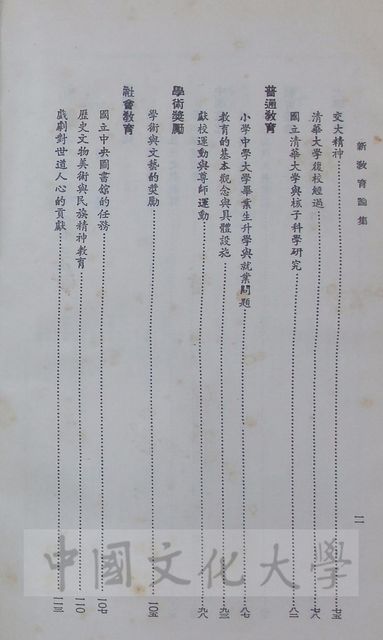 新教育論集
二
交大精神⋯⋯七五
清華大學復校經過⋯⋯七八
國立清華大學與核子科學研究⋯⋯八二
普通教育
小學中學大學畢業生升學與就業問題⋯⋯八七
教育的基本觀念與具體設施⋯⋯九三
獻校運動與尊師運動⋯⋯九八
學術獎勵
學術與文藝的獎勵⋯⋯一〇五
社會教育
國立中央圖書館的任務⋯⋯一〇七
歷史文物美術與民族精神教育⋯⋯一一〇
戲劇對世道人心的貢獻⋯⋯一一三
中國文化大學